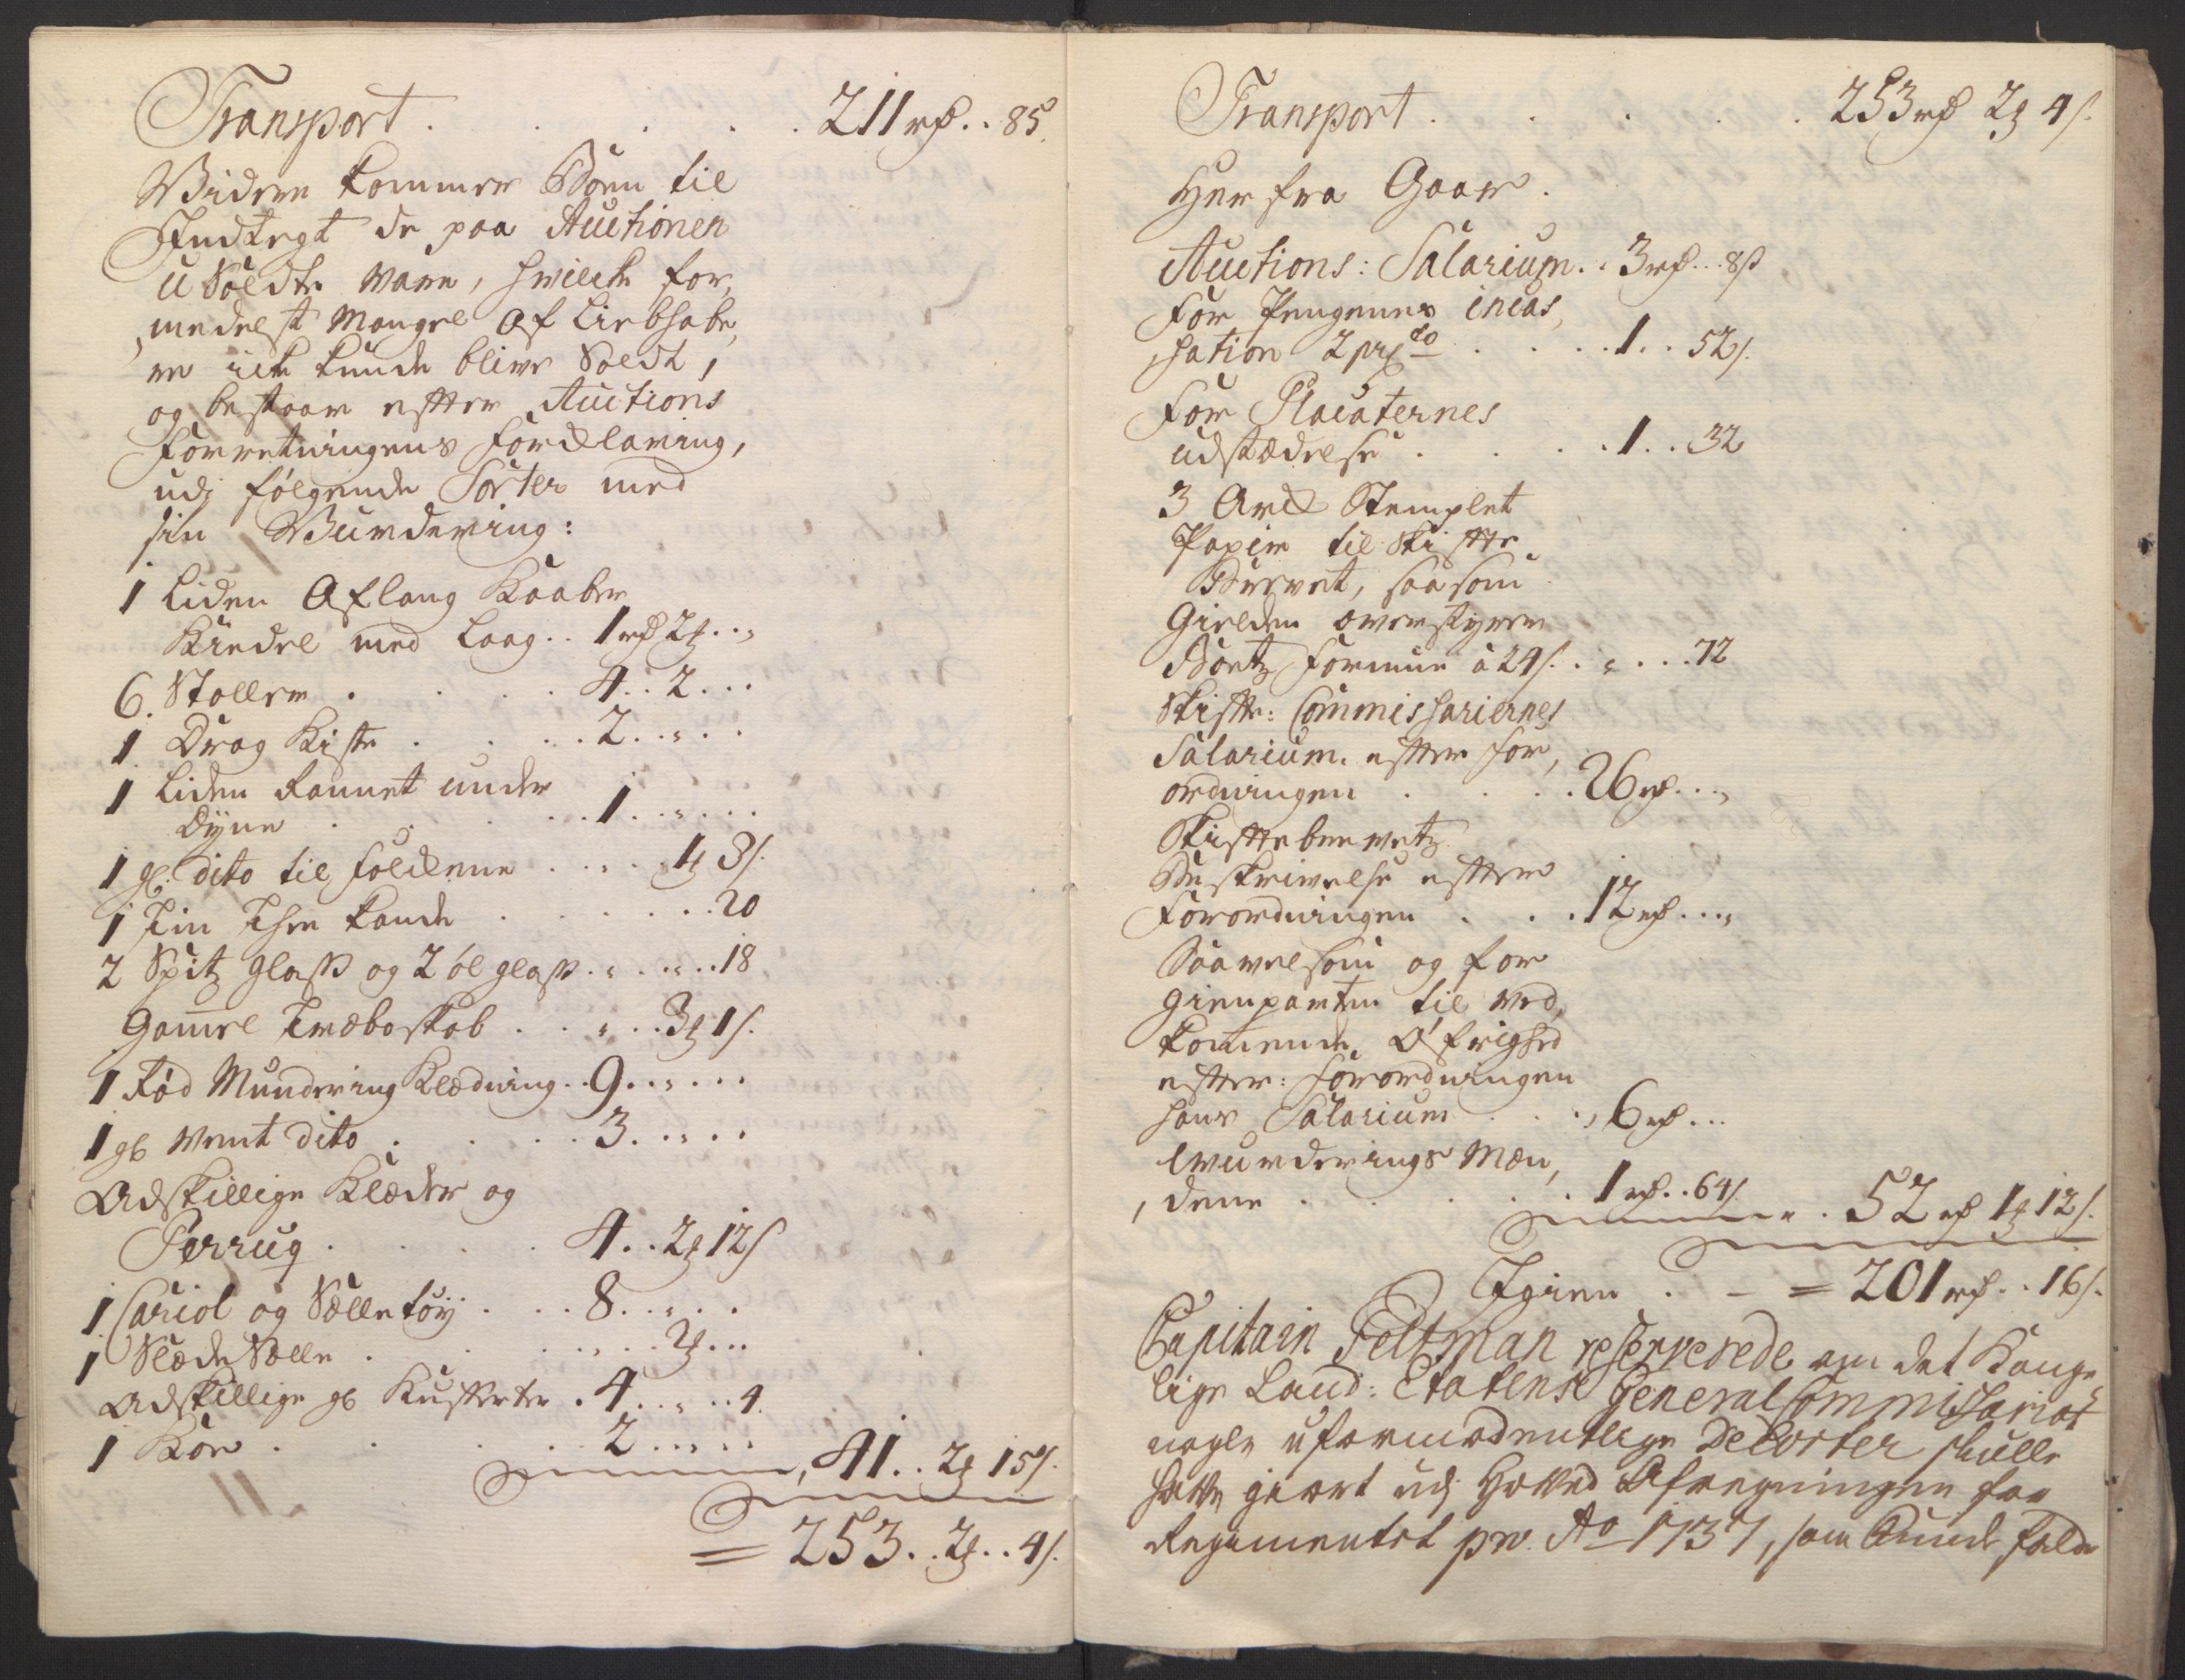 Transport . . . . . 211 rd . . 85.
Videre kommer Boen til
Indtegt de paa Auctionen
U Soldte Vare, hvilcke for,
,medelst Mangel af Liebhabe,
re icke kunde blive Soldt,
og bestaar efter Auctions
Forretningens Forcklaring,
udj følgende Sorter med
sin Vurdering:
1 Liden Aflang Kaaber
Kiedel med Laag . . 1 rd 2 ꝉ . . „
6. Stoller . . . . 4 . . 2 . . .
1 Drag Kiste . . . . 2 . . „ . .
1 Liden Rannet under
Dyne . . . . 1 . . „ . . . .
1 gl. dito til Folckene . . „ . 1 ꝉ 8 s.
1 Tin Thee kande . . . . . . 20
2 Spitz Glass og 2 øl glass . „ . . „ . . 18
Gammel Træboskab . . „ . . 3 ꝉ 1 s.
1 Rød Mundering Klædning . . 9 . . „ . . .
1 gl vent dito . . . . 3 . . „ . .
Adskillige Klæder og
Perruq . . . . 4 . . 2 ꝉ 12 s
1 Cariol og Selletøy . . . 8 . . „ . .
1 Slæde Sælle . . . . . „ . . 2 ꝉ . . .
Adskillige gl Kufferter . 4 . . „ . . 4.
1 Koe . . . . . 2 . . „ . .
41 . . 2 ꝉ 15 s.
= 253 . . 2 ꝉ . . 4 s.
Transport . . . . . 253 rd 2 ꝉ 4 s.
Her fra Gaar.
Auctions: Salarium . . 3 rd . . . 8 s
For Pengenes incas,
,sation 2 pr Cto . . . . 1 . . 52 s.
For Placaternes
udstædelse . . . . 1 . . 32
3 Arck Stemplet
Papiir til Skifte
Brevet, saasom
Gielden overstyrer
Boetz Formue à 24 s. . „ . . . 72
Skifte: Commissariernes
Salarium. efter For,
ordningen . . . . 26 rd . . . „
Skiftebrevetz
Beskrivelse efter
Forordningen . . . 12 rd . . . „
Saavelsom og for
Gienparten til ved,
kommende Øfrighed
efter: Forordningen
hans Salarium . . . , 6 rd . . .
Wurderings Mæn,
, dene . . . . . 1 rd . . 64 s.
. 52 rd 1 ꝉ 12 s.
Igien . – = 201 rd . . 16 s.
Capitain Feltman reserverede om det Konge
lige Land: Etatens General Commissariat
nogle uformodentlige Decorter skulle
have giort udj Hoved Afregningen for
Regimentet pro. Ao 1737, som kunde falde